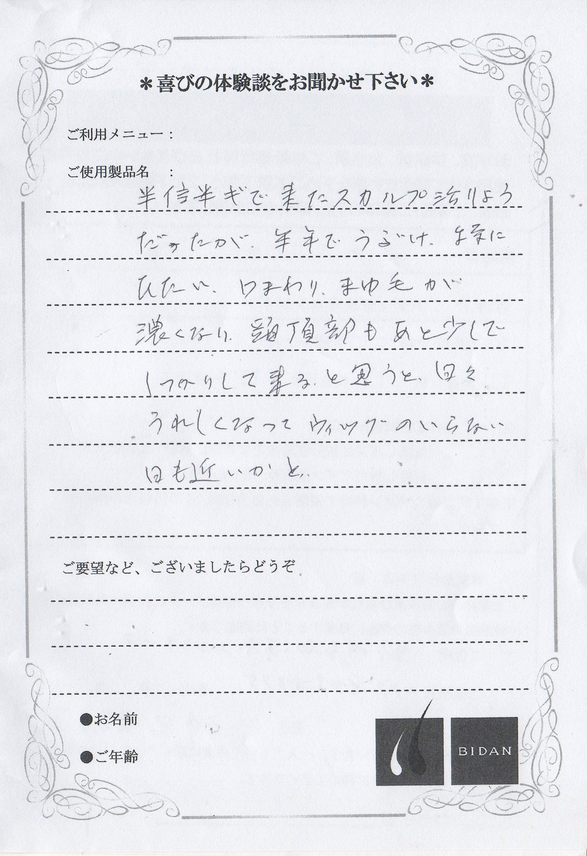 ＊喜びの体験談をお聞かせ下さい＊
ご利用メニュー：
ご使用製品名　：
半信半ギで来たスカルプ治りょう
だったが、半年でうぶ毛、
ひたい、口まわり、まゆ毛が
濃くなり、頭頂部もあと少しで
しっかりして来る、と思うと、日々
うれしくなってウィッグのいらない
日も近いかと、
ご要望など、ございましたらどうぞ
●お名前
●ご年齢
BIDAN